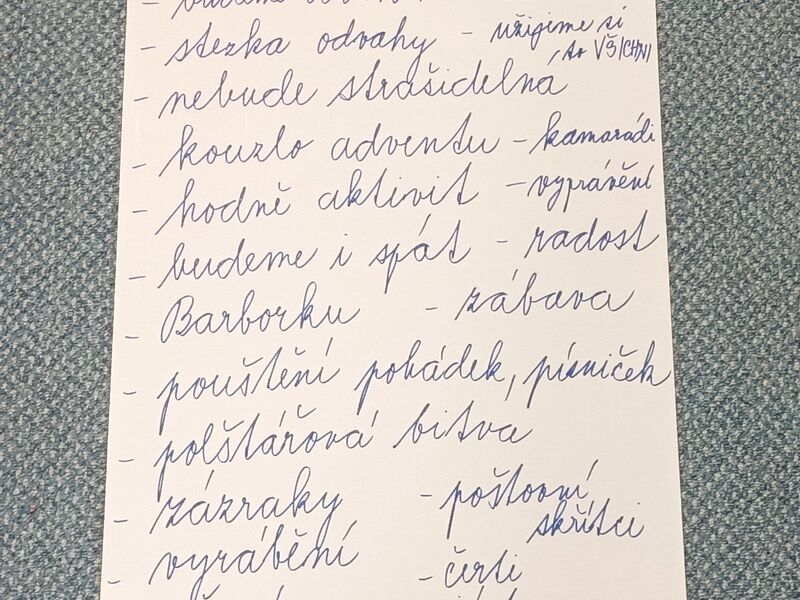 - stezka odvahy - užijeme si
to VŠICHNI
- nebude strašidelná
- kouzlo adventu - kamarádi
- hodně aktivit - vyprávění
- budeme i spát - radost
- Barborku - zábava
- pouštění pohádek, písniček
- polštářová bitva
- zázraky - poštovní
skřítci
- vyrábění
- čerti